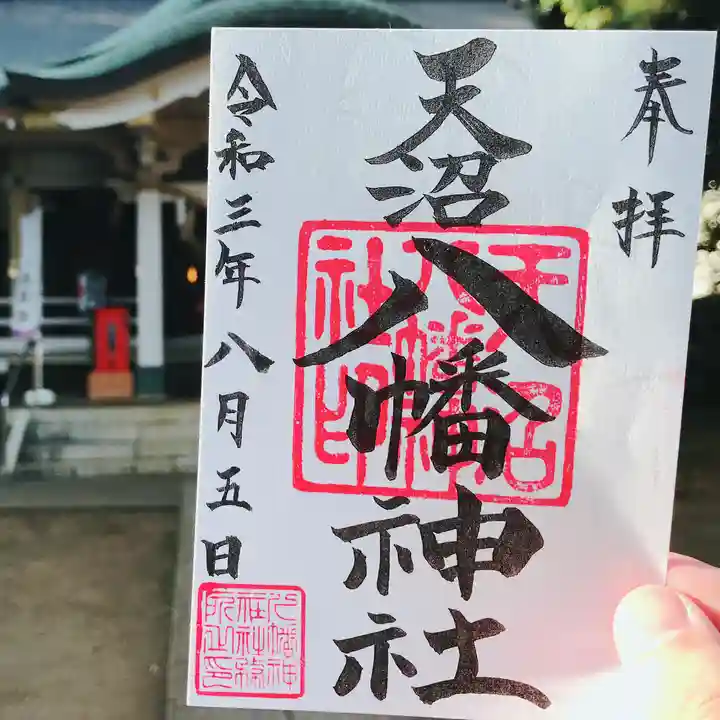 奉拝
天沼八幡神社
令和三年八月五日
天沼八幡神社印